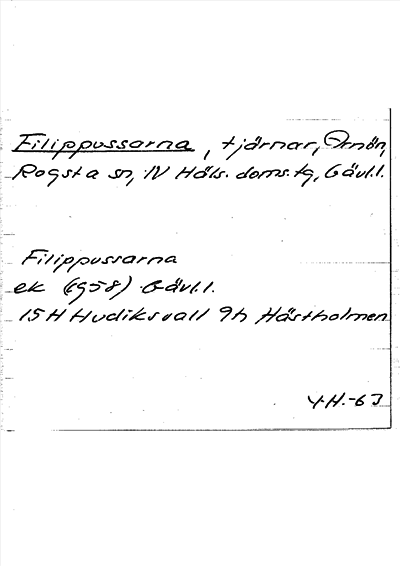 Filippussarna, tjärnar, Ornön,
Rogsta sn, N Häls. doms. tg, Gävl.l.
Filippussarna
ek (1958) Gävl.l.
15H Hudiksvall 9h Hästholmen
Y.H.-63